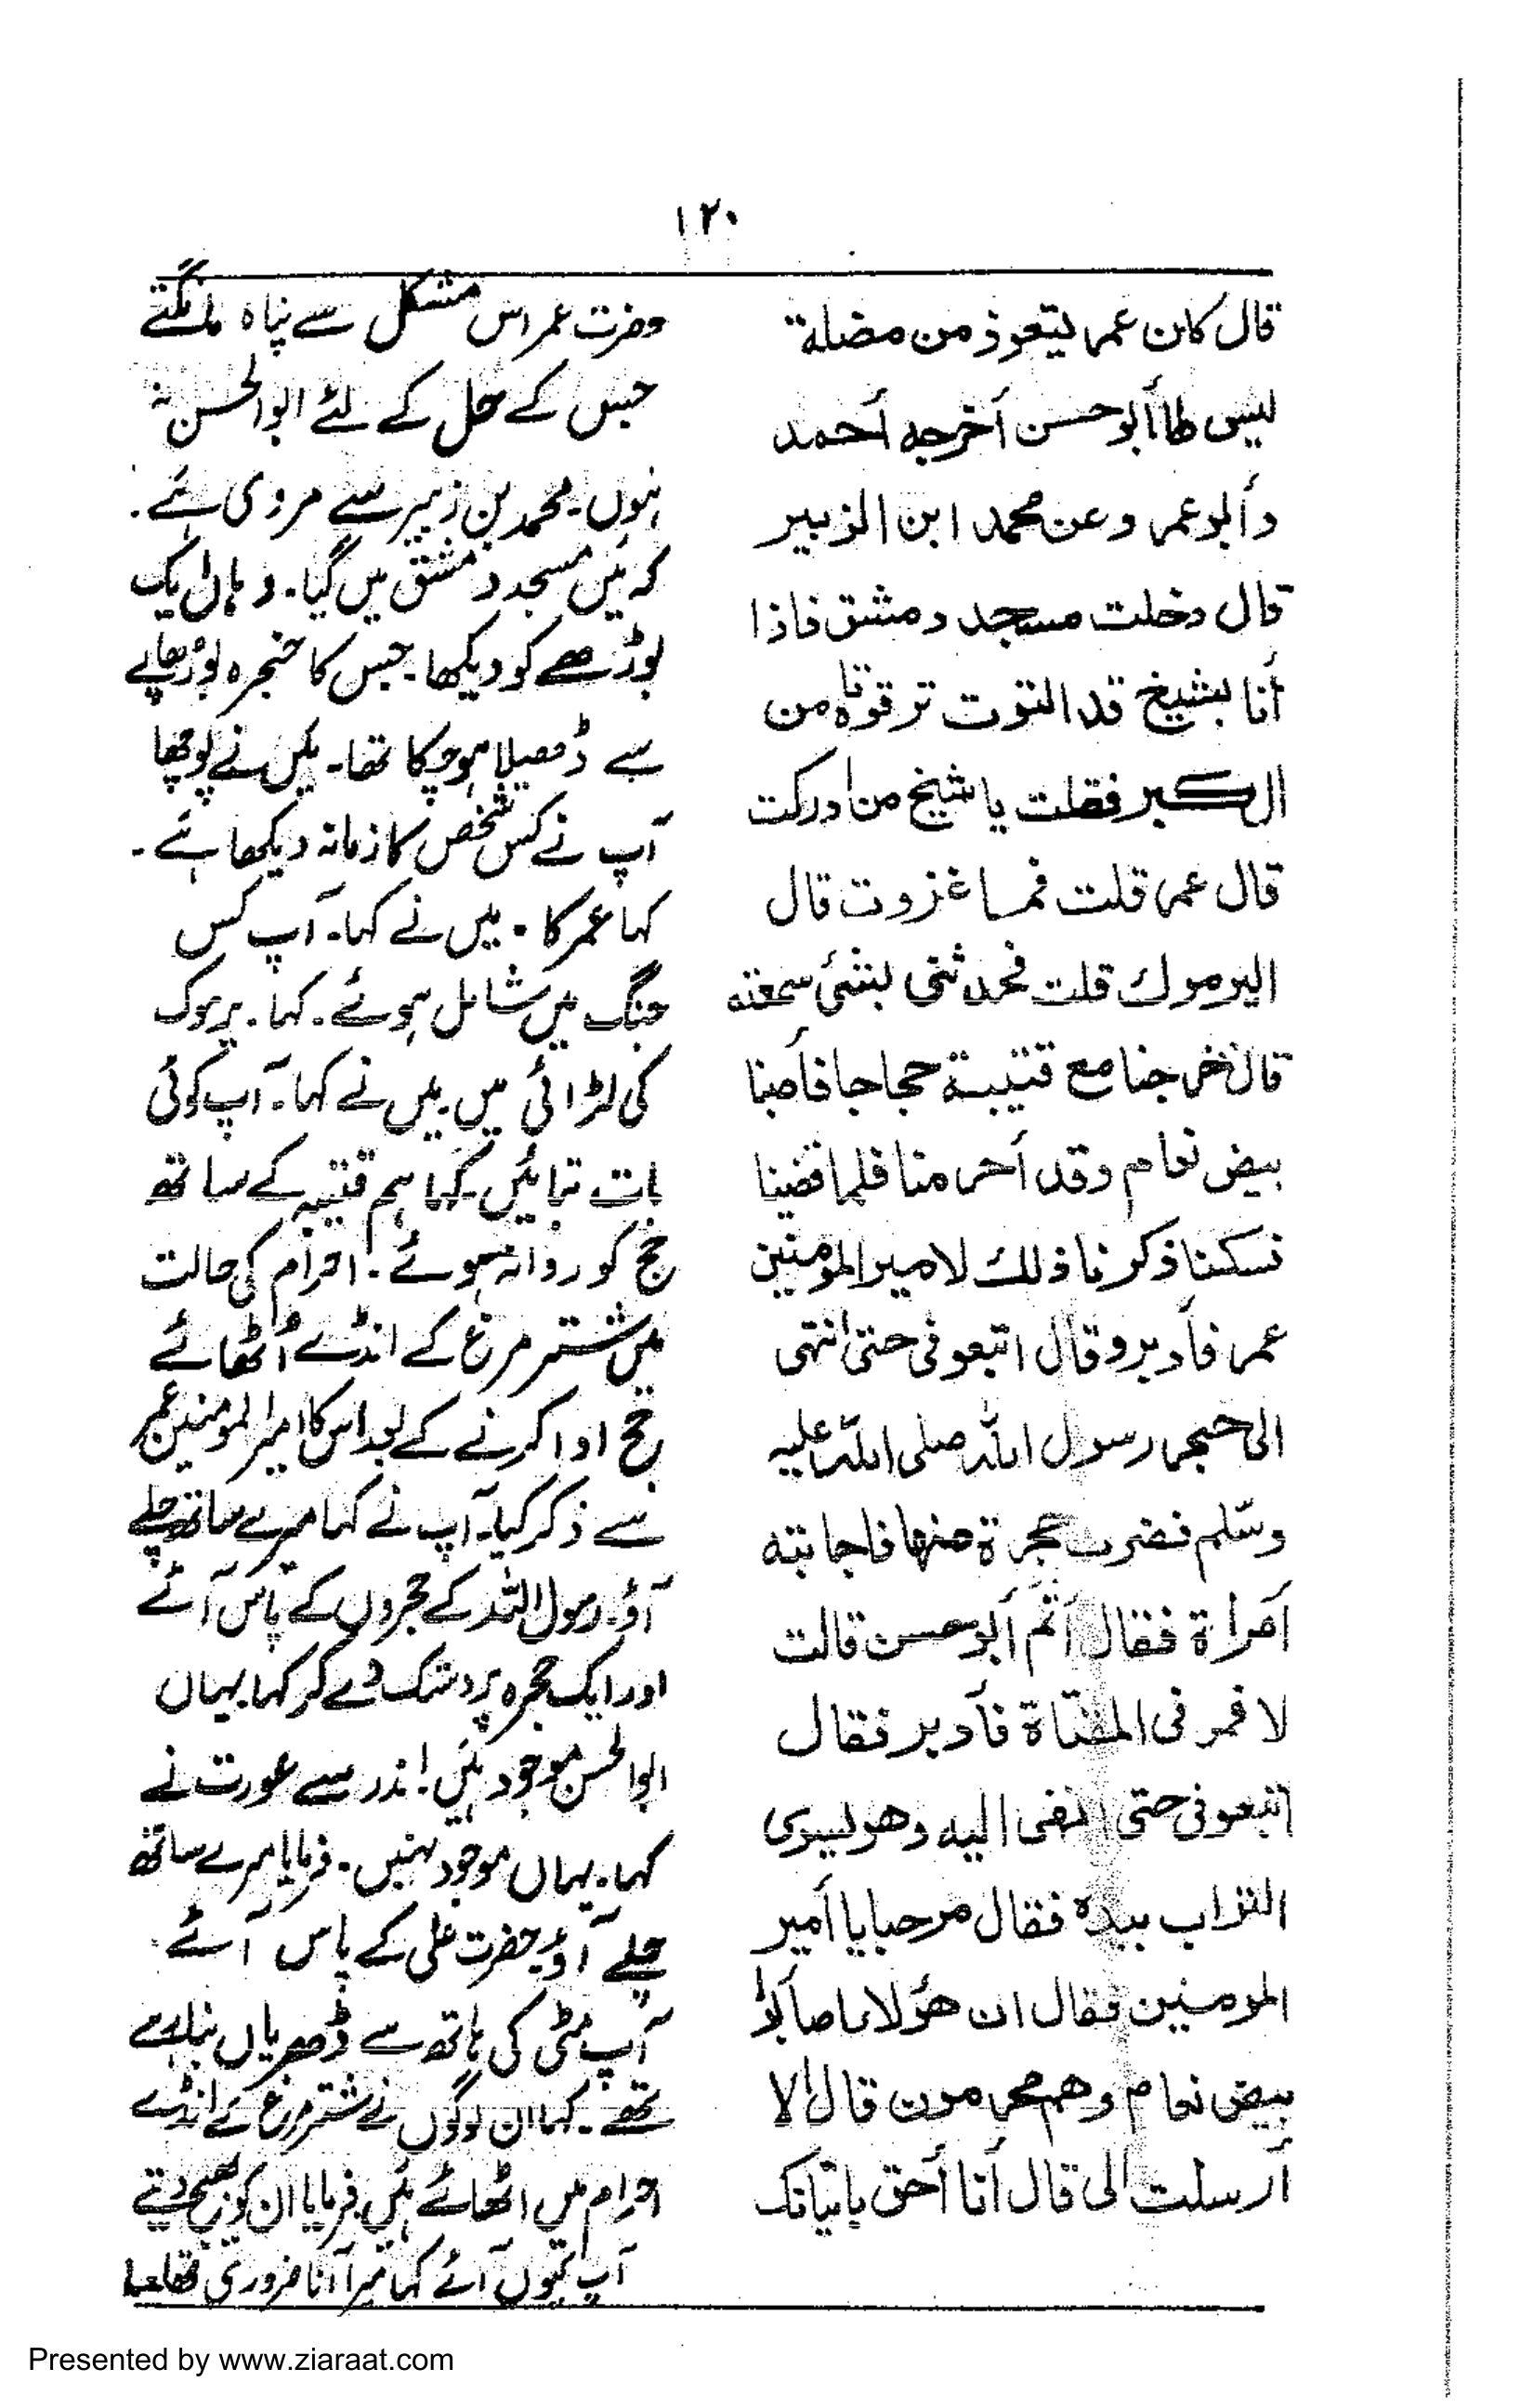 ۱۲۰
قال كان عمر يتعوذ من مضلة
ليس لها أبو حسن أخرجه أحمد
وأبو عمر وعن محمد ابن الزبير
قال دخلت مسجد دمشق فاذا
أنا بشيخ قد التوت ترقوتاه من
الكبر فقلت يا شيخ من ادركت
قال عمر قلت فما غزوت قال
اليرموك قلت فحدثنى بشئ سمعته
قال خرجنا مع قتيبة حجاجا فأصبنا
بيض نعام وقد أحرمنا فلما قضينا
نسكنا ذكرنا ذلك لامير المومنين
عمر فأدبر وقال اتبعونى حتى انتهى
الى حجر رسول الله صلى الله عليه
وسلم فضرب حجرة منها فاجابته
أمرأة فقال أثم أبو حسن قالت
لا فمر فى المقتاة فأدبر فقال
اتبعونى حتى انتهى اليه وهو يسوى
التراب بيده فقال مرحبا يا أمير
المومنين فقال ان هؤلاء اصابوا
بيض نعام وهم محرمون قال الا
أرسلت الى قال أنا أحق باتيانك
حضرت عمر اس مشکل سے پناہ مانگتے
جس کے حل کے لئے ابوالحسن نہ
ہوں۔ محمد بن زبیر سے مروی ہے۔
کہ میں مسجد دمشق میں گیا۔ وہاں ایک
بوڑھے کو دیکھا۔ جس کا حنجرہ بوڑھاپے
سے ڈھیلا ہو چکا تھا۔ میں نے پوچھا
آپ نے کس شخص کا زمانہ دیکھا ہے۔
کہا عمر کا۔ میں نے کہا۔ آپ کس
جنگ میں شامل ہوئے۔ کہا۔ یرموک
کی لڑائی میں۔ میں نے کہا۔ آپ کوئی
بات بتائیں۔ کہا ہم قتیبہ کے ساتھ
حج کو روانہ ہوئے۔ احرام کی حالت
میں شتر مرغ کے انڈے اُٹھائے
حج ادا کرنے کے بعد اس کا امیرالمومنین عمر
سے ذکر کیا۔ آپ نے کہا میرے ساتھ چلے
آؤ۔ رسول اللہ کے حجروں کے پاس آئے
اور ایک حجرہ پر دستک دے کر کہا۔ یہاں
ابوالحسن موجود ہیں۔ اندر سے عورت نے
کہا۔ یہاں موجود نہیں۔ فرمایا میرے ساتھ
چلے آؤ۔ حضرت علی کے پاس آئے
آپ مٹی کی ہاتھ سے ڈھیریاں بنا رہے
تھے۔ کہا ان لوگوں نے شتر مرغ کے انڈے
احرام میں اٹھائے ہیں۔ فرمایا ان کو بھیج دیتے
آپ کیوں آئے کہا میرا آنا ضروری تھا
Presented by www.ziaraat.com